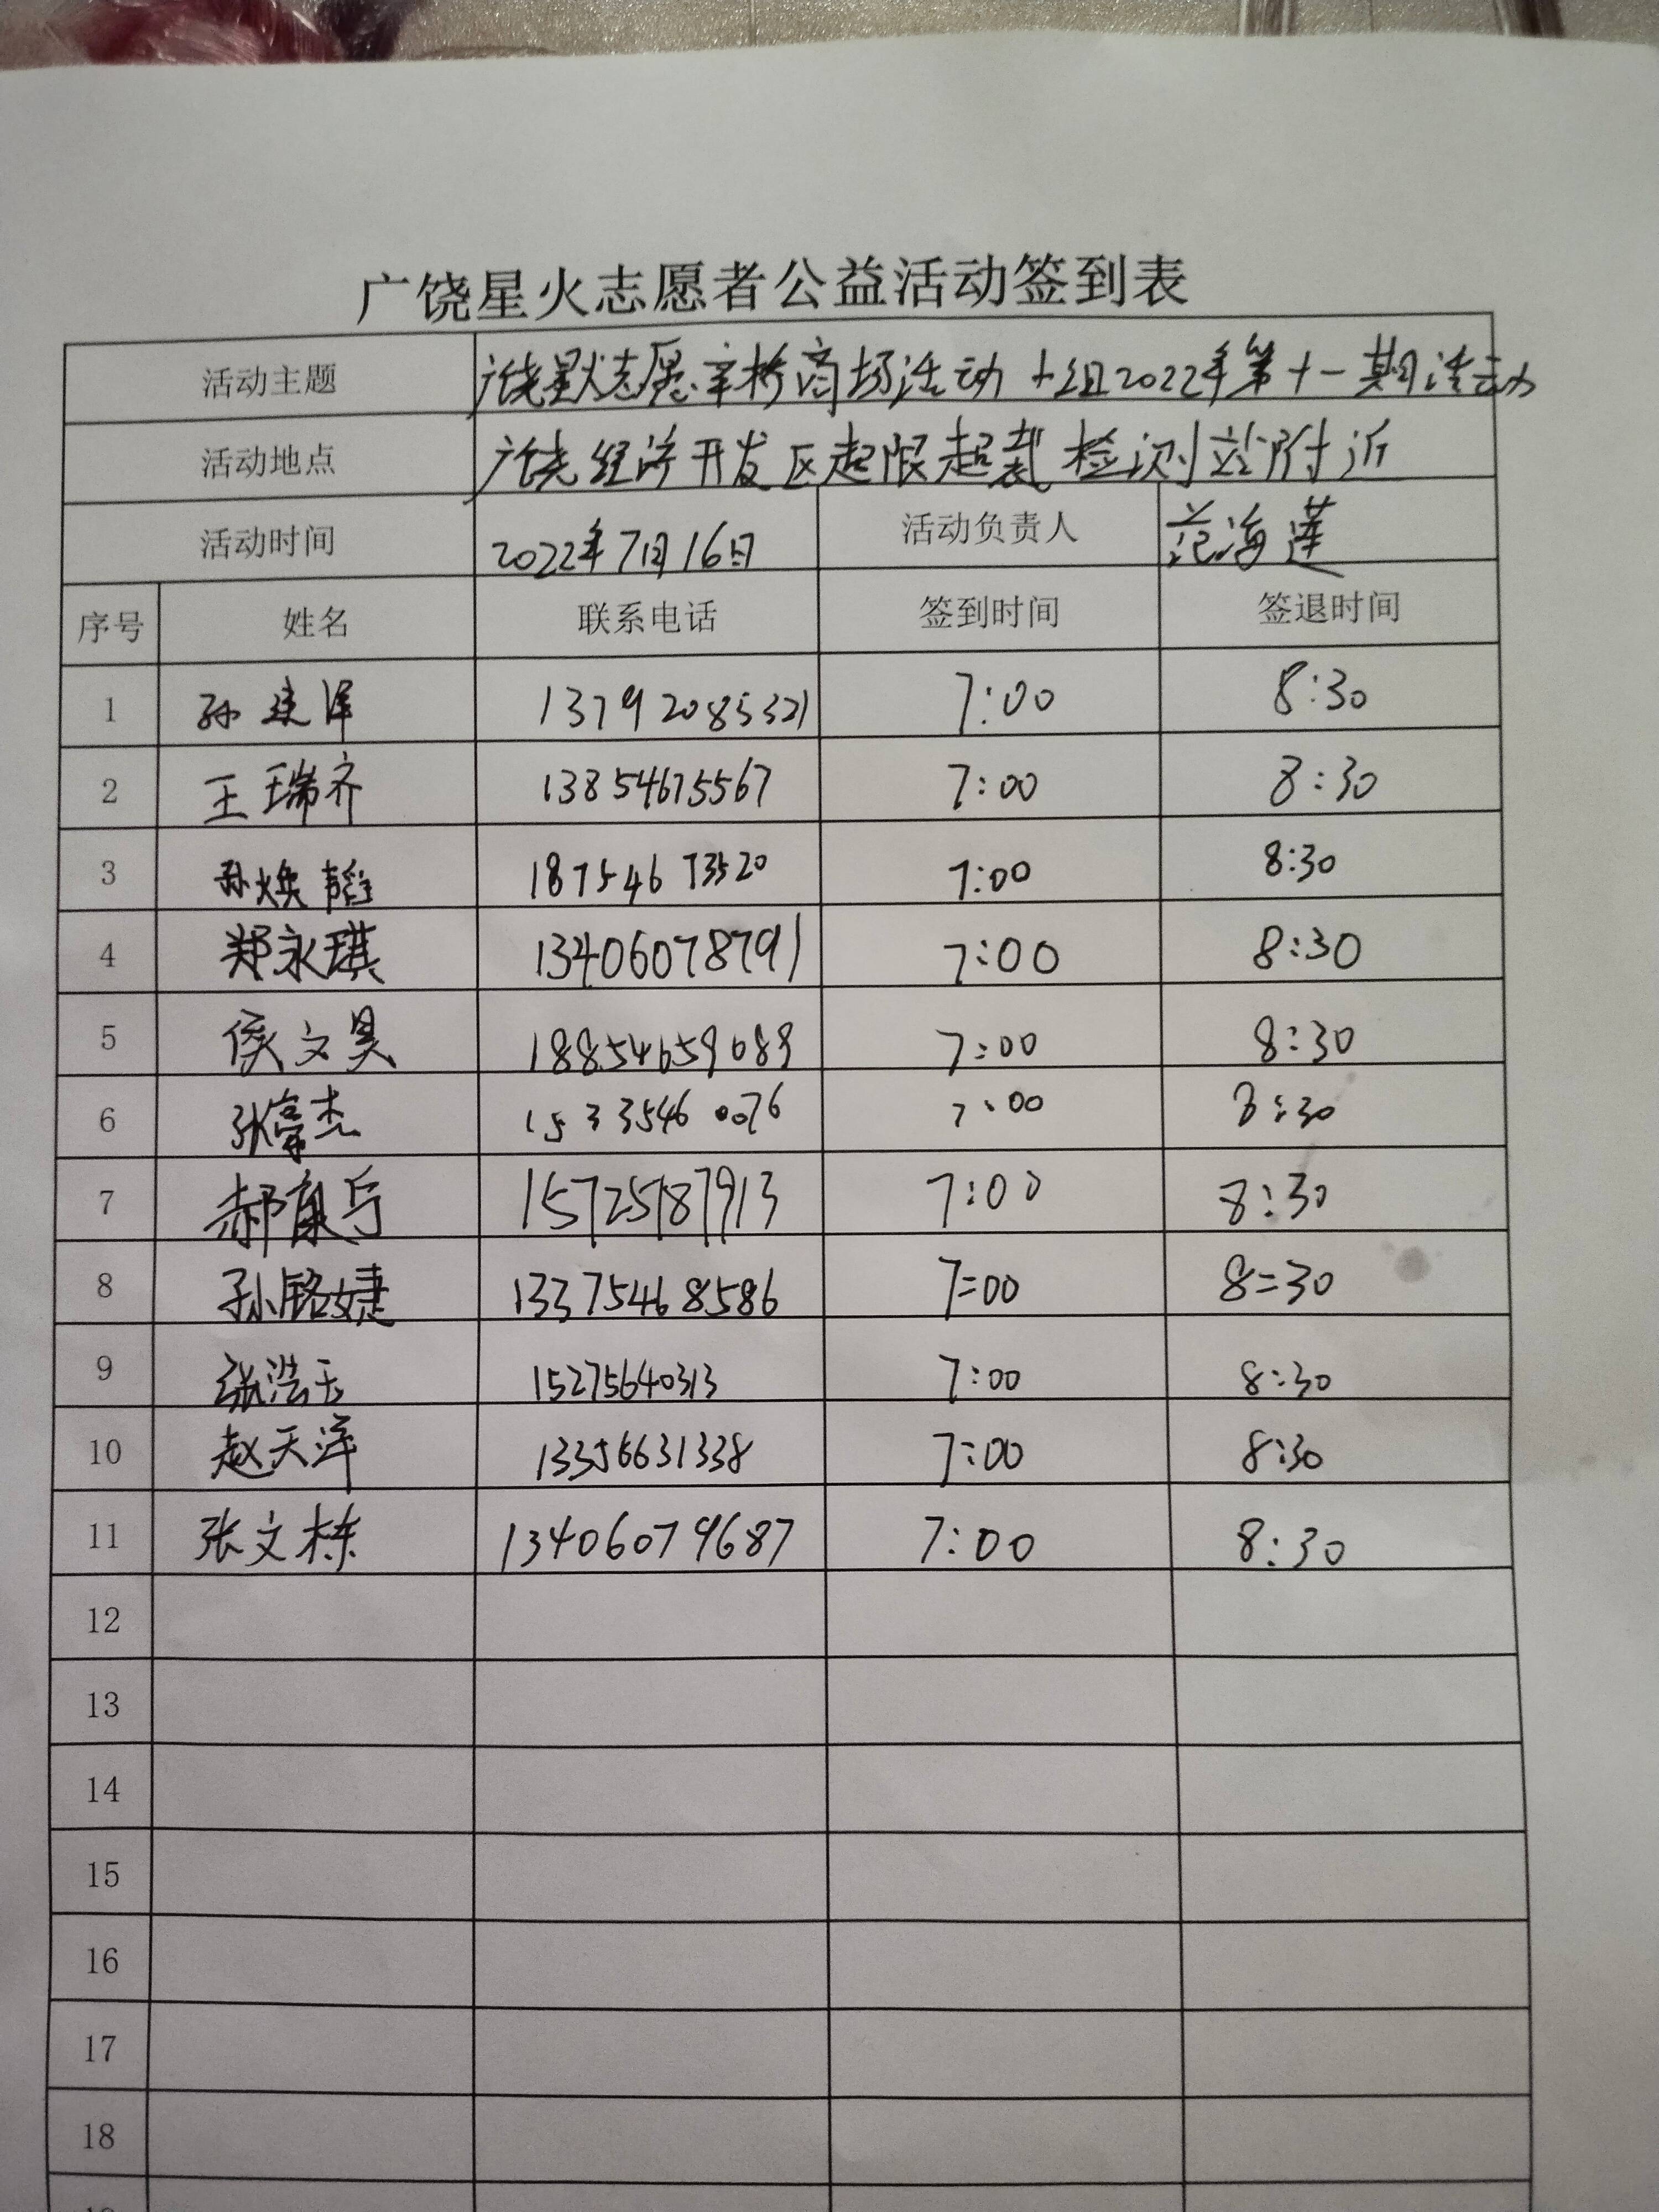 广饶星火志愿者公益活动签到表
活动主题 广饶星火志愿辛桥商场活动十组2022年第十一期活动
活动地点 广饶经济开发区超限超载检测站附近
活动时间 2022年7月16日 活动负责人 范海莲
序号 姓名 联系电话 签到时间 签退时间
1 孙建洋 13792085321 7:00 8:30
2 王瑞齐 13854675567 7:00 8:30
3 孙焕韬 18754673520 7:00 8:30
4 郑永琪 13406078791 7:00 8:30
5 侯文昊 18854659089 7:00 8:30
6 张豪杰 15335460076 7:00 8:30
7 郝康宁 15725787913 7:00 8:30
8 孙铭婕 13375468586 7=00 8=30
9 张浩玉 15275640313 7:00 8:30
10 赵天洋 13356631338 7:00 8:30
11 张文栋 13406079687 7:00 8:30
12
13
14
15
16
17
18